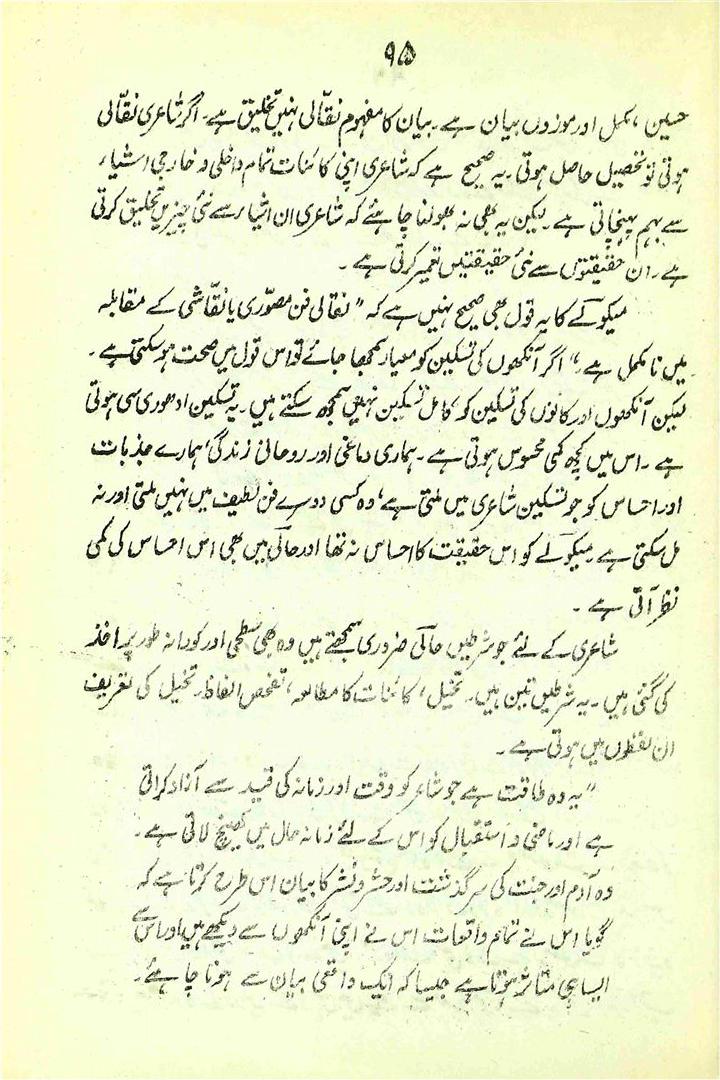 ۹۵
حسین، مکمل اور موزوں بیان ہے۔ بیان کا مفہوم نقّالی نہیں تخلیق ہے۔ اگر شاعری نقّالی
ہوتی تو تحصیل حاصل ہوتی۔ یہ صحیح ہے کہ شاعری اپنی کائنات تمام داخلی و خارجی اشیاء
سے بہم پہنچاتی ہے۔ لیکن یہ بھی نہ بھولنا چاہئے کہ شاعری ان اشیار سے نئی چیزیں تخلیق کرتی
ہے۔ ان حقیقتوں سے نئی حقیقتیں تعمیر کرتی ہے۔
میکولے کا یہ قول بھی صحیح نہیں ہے کہ ”نقالی فن مصوّری یا نقّاشی کے مقابلہ
میں نا مکمل ہے۔“ اگر آنکھوں کی تسکین کو معیار سمجھا جائے تو اس قول میں صحت ہو سکتی ہے۔
لیکن آنکھوں اور کانوں کی تسکین کو کامل تسکین نہیں سمجھ سکتے ہیں۔ یہ تسکین ادھوری سی ہوتی
ہے۔ اس میں کچھ کمی محسوس ہوتی ہے۔ ہماری دماغی اور روحانی زندگی، ہمارے جذبات
اور احساس کو جو تسکین شاعری میں ملتی ہے، وہ کسی دوسرے فن لطیف میں نہیں ملتی اور نہ
مل سکتی ہے۔ میکولے کو اس حقیقت کا احساس نہ تھا اور حالی میں بھی اس احساس کی کمی
نظر آتی ہے۔
شاعری کے لئے جو شرطیں حالی ضروری سمجھتے ہیں وہ بھی سطحی اور کورانہ طور پر اخذ
کی گئی ہیں۔ یہ شرطیں تین ہیں۔ تخئیل، کائنات کا مطالعہ، تفحص الفاظ۔ تخئیل کی تعریف
ان لفظوں میں ہوتی ہے۔
”یہ وہ طاقت ہے جو شاعر کو وقت اور زمانہ کی قید سے آزاد کراتی
ہے اور ماضی و استقبال کو اس کے لئے زمانہ حال میں کھینچ لاتی ہے۔
وہ آدم اور جنت کی سرگذشت اور حشر و نشر کا بیان اس طرح کرتا ہے کہ
گویا اس نے تمام واقعات اس نے اپنی آنکھوں سے دیکھے ہیں اور اس سے
ایسا ہی متاثر ہوتا ہے جیسا کہ ایک واقعی بیان سے ہونا چاہئے۔